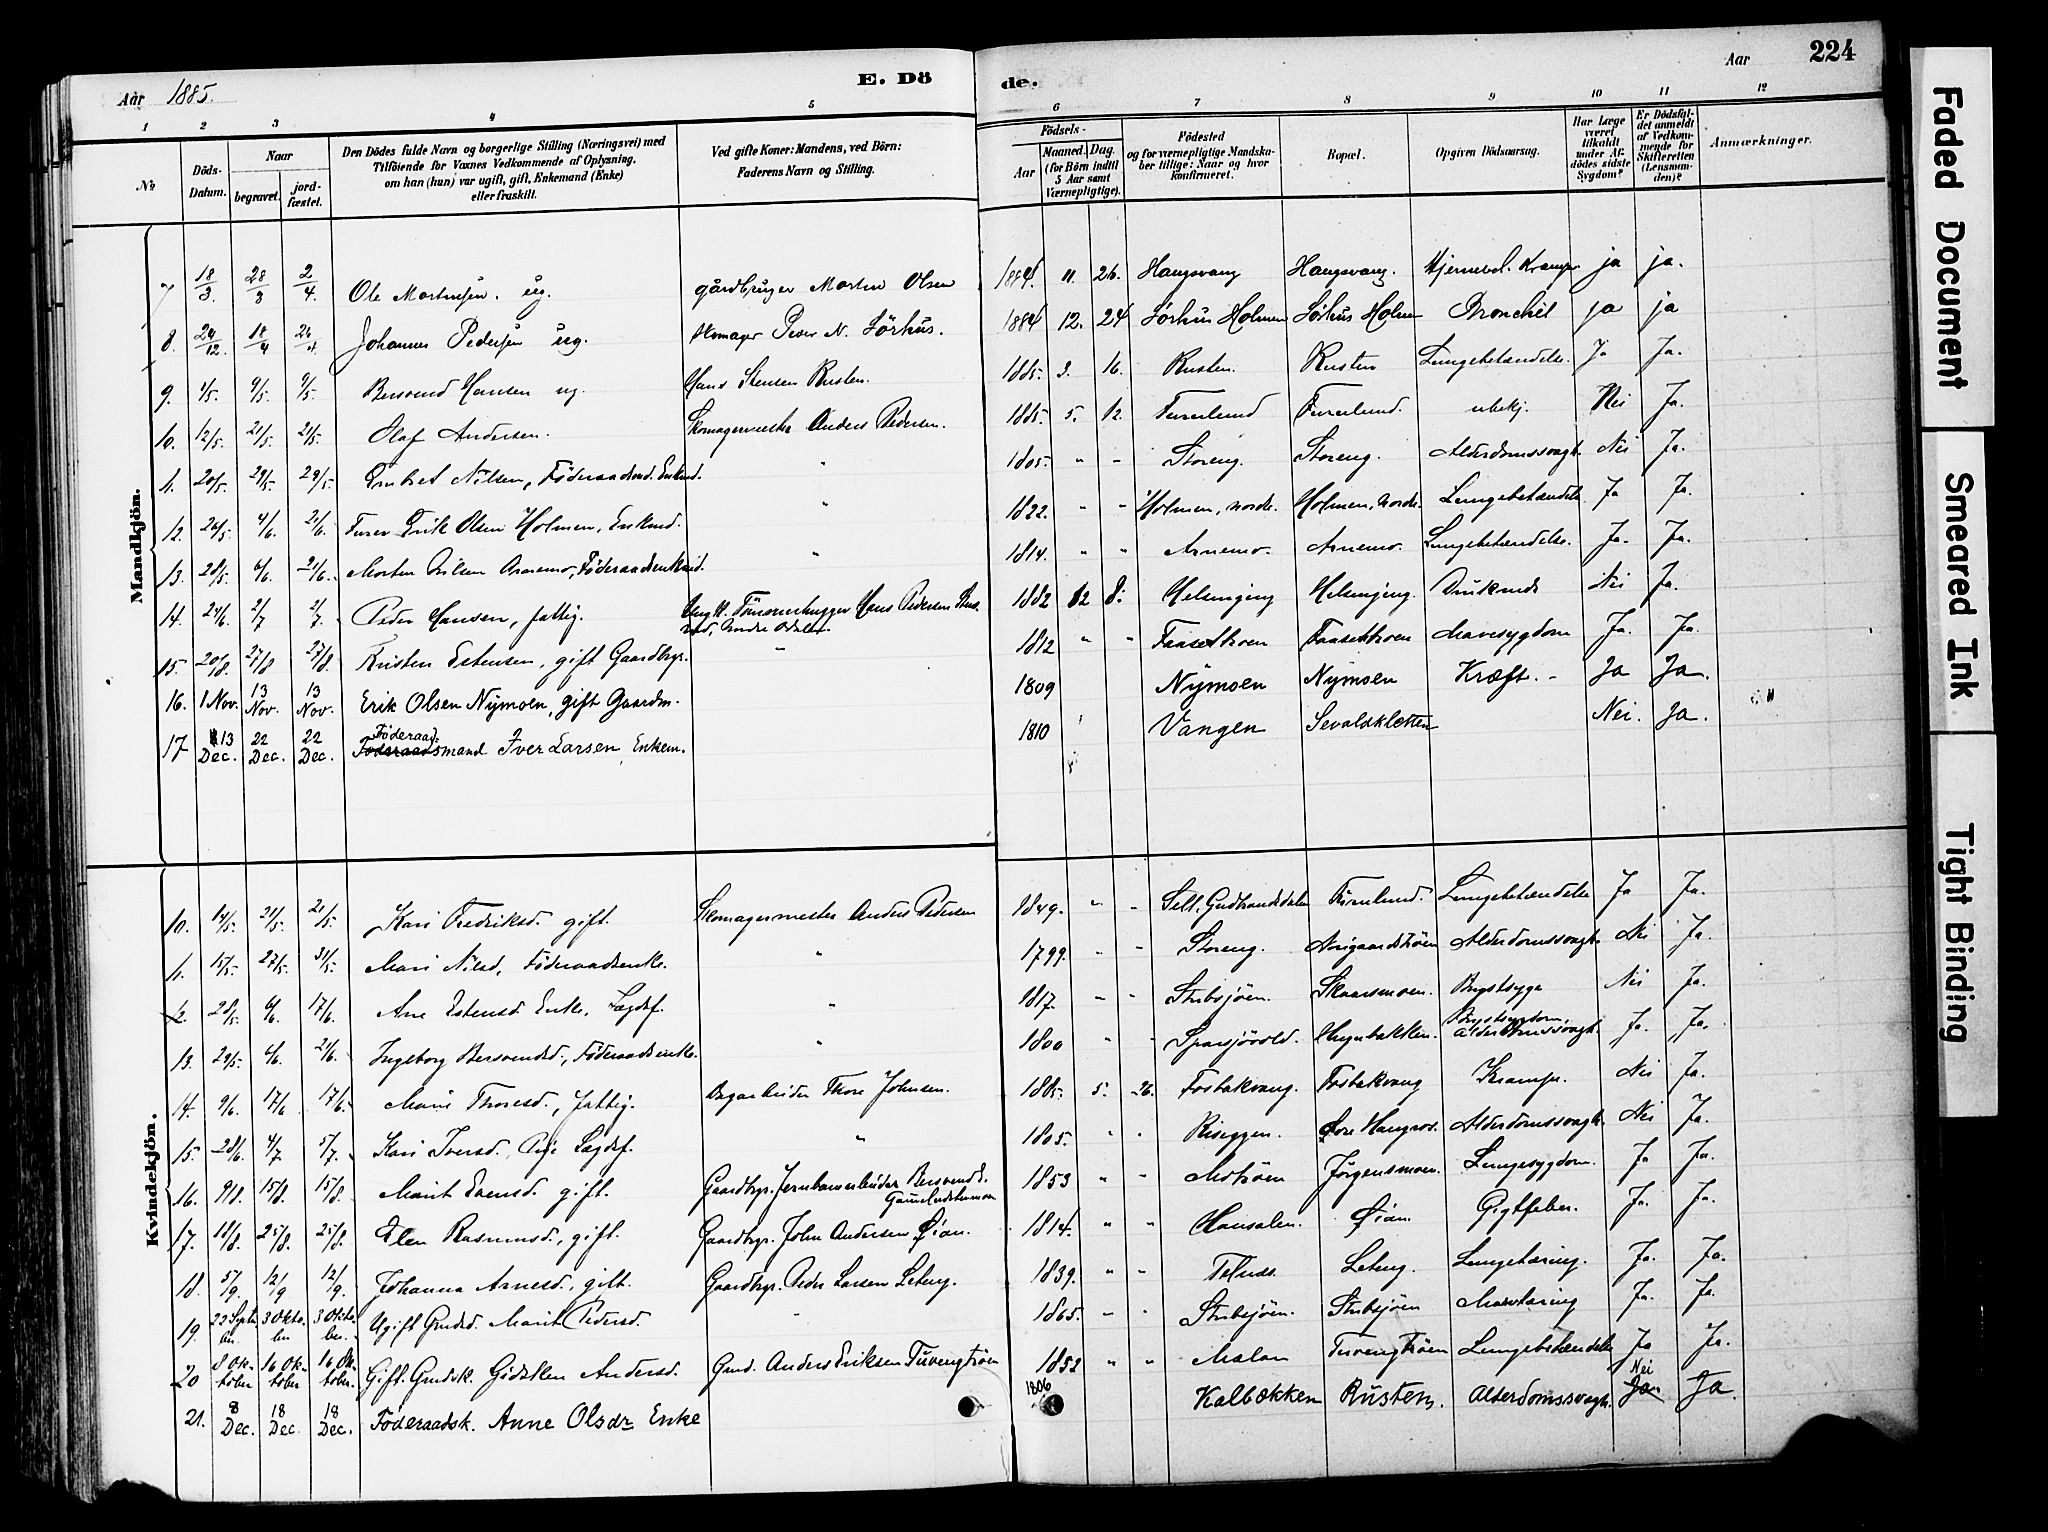 Aar 1885.
E. Dö
de.
Aar 224
1 2 3 4 5 6 7 8 9 10 11 12
No
Döds-Datum.
Naar
begravet.
jord-fæstet.
Den Dödes fulde Navn og borgerlige Stilling (Næringsvei) med
Tilföiende for Voxnes Vedkommende af Oplysning,
om han (hun) var ugift, gift, Enkemand (Enke)
eller fraskilt.
Ved gifte Koner: Mandens, ved Börn:
Faderens Navn og Stilling.
Födsels-
Aar
Maaned. Dag.
(for Börn indtil
5 Aar samt
Værnepligtige).
Födested
og for værnepligtige Mandska-
ber tillige: Naar og hvor
konfirmeret.
Bopæl.
Opgiven Dödsaarsag.
Har Læge
været
tilkaldt
under Af-
dödes sidste
Sygdom?
Er Dödsfal-
det anmeldt
af Vedkom-
mende for
Skifteretten
(Lensman-
den)?
Anmærkninger.
Mandkjön.
7 18/3. 28/3 2/4. Ole Mortensen. ug. gårdbruger Morten Olsen 1884. 11. 26. Haugsvang Haugsvang. Hjernebel. Krampe ja ja.
8. 24/12. 18/4 26/4. Johannes Pedersen ug. skomager Peder N. Sørhus. 1884 12. 24 Sørhus Holmen Sørhus Holmen Bronchit ja ja
9. 4/5. 9/5. 9/5. Bersvend Hansen ug. Hans Stensen Rusten. 1885. 3. 16. Rusten. Rusten Lungebetændelse. Ja Ja.
10. 12/5. 21/5. 21/5. Olaf Andersen. Skomagermester Anders Pedersen. 1885. 5. 12. Furulund Furulund. ubekj. Nei Ja.
11. 20/5. 29/5. 29/5. Embret Nilsen, Föderaadsmd. Enkmd. " 1805. " " Storeng. Storeng. Alderdomssvagh. Nei Ja.
12. 26/5. 4/6. 21/6. Furer Erik Olsen Holmen, Enkmd. " 1822. " " Holmen, nordr. Holmen, nordr. Lungebetændelse Ja Ja.
13. 28/5. 6/6. 21/6. Morten Nilsen Arnemo, Föderaadsenkmd. " 1814. " " Arnemo. Arnemo. Lungebetændelse. Ja. Ja.
14. 24/6. 2/7 2/7. Peder Hansen, fattig. Ung K. Tömmerhugger Hans Pedersen
rud, Nordre Odalen. 1882 12 8. Helsinging Helsinging. Druknede Nei Ja.
15. 20/8. 27/8 27/8. Kristen Estensen, gift Gaardbgr. " 1812 " " Faasethoen Faasethoen Mavesygdom Ja. Ja.
16. 1 Nov. 13 Nov. 13 Nov. Erik Olsen Nymoen, gift Gaardm. 1809 Nymoen Nymoen Kræft. - Ja Ja.
17 13 Dec. 22 Dec. 22 Dec. Föderaadsmand Iver Larsen, Enkem. 1810 Vangen Sevaldkletten Nei. Ja.
Kvindekjön.
10. 14/5. 21/5. 21/5. Kari Fredriksd. gift. Skomagermester Anders Pedersen 1849. " " Sell, Gudbrandsdalen Furulund. Lungebetændelse Ja Ja.
11. 15/5. 27/5. 31/5. Mari Nilsd, Föderaadsenke. " 1799. " " Storeng. Norigaardströen Alderdomssvagh. Nei Ja.
12. 28/5. 6/6. 17/6. Ane Estensd. Enke, Lægdsl. " 1817. " " Stubsjöen. Skaarsmoen. Brystsyge Nei Ja.
13. 29/5. 6/6. 21/6. Ingeborg Bersvendsd., Föderaadsenke. " 1800 " " Sparsjövold. Haugbakken. Brystsygdom, Alderdomssvagh. Ja. Ja.
14. 9/6. 17/6 17/6. Marie Thoresd., fattig. Dagarbeider Thore Johnsen. 1885. 5. 26. Fosbakvang. Fosbakvang Krampe. Nei Ja.
15. 28/6. 4/7 5/7. Kari Iversd., Pige Lægdsl. " 1805. " " Riseggen. Øvre Haugros. Alderdomssvagh. Nei Ja.
16. 9/8. 15/8. 15/8. Marit Evensd. gift. Gaardbgr. Jernbanearbeider Bersvend E.
1853 " " Motröen Jörgensmoen. Lungesygdom. Ja Ja.
17. 18/8. 25/8. 25/8. Elen Rasmusd., gift. Gaardbgr. John Andersen Øian. 1814. " " Hansalen. Øian. Gigtfeber. Ja. Ja.
18. 5/9. 12/9 12/9. Johanna Arnesd., gift. Gaardbgr. Peder Larsen Leteng. 1839. " " Telnæs. Leteng. Lungetæring. Ja. Ja.
19. 22 September. 3 Oktober 3 Oktober. Ugift Grdsd. Marit Pedersd. " 1865. " " Stubsjöen. Stubsjöen Mavetæring Ja. Ja.
20 8 Oktober 16 Oktober 16 Oktober. Gift. Grdsk. Gidsken Andersd. Grmd. Anders Eriksen Tuvengtröen 1852 " " Malan Tuvengtröen Lungebetændelse Ja Ja.
21. 8 Dec. 18 Dec. 18 Dec. Föderaadsk. Anne Olsdr Enke 1806 Kalbækken Rusten. Alderdomssvagh. Nei Ja Ja
Faded Document
Smeared Ink
Tight Binding